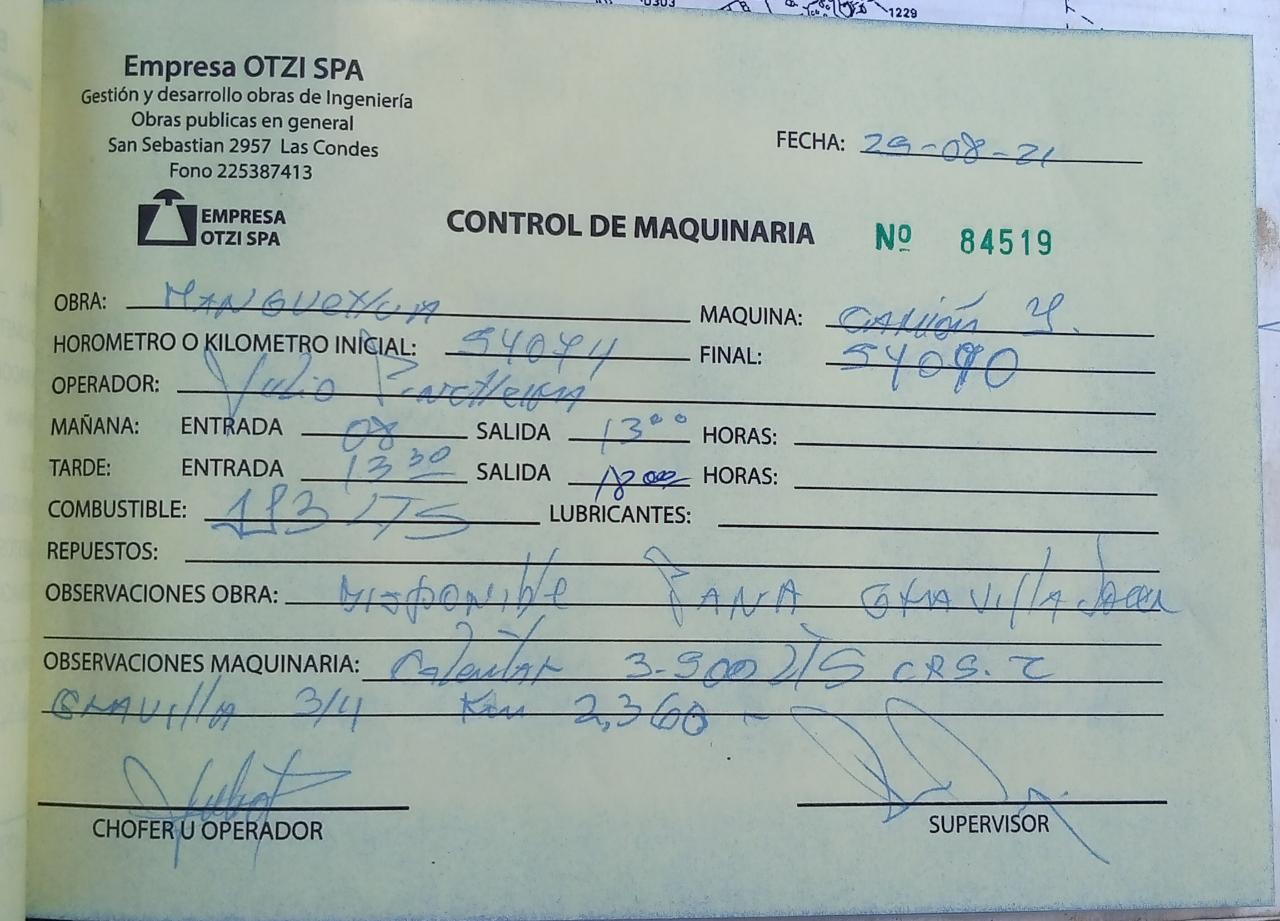 1229
Empresa OTZI SPA
Gestión y desarrollo obras de Ingeniería
Obras publicas en general
San Sebastian 2957 Las Condes
Fono 225387413
FECHA: 29-08-21
EMPRESA
OTZI SPA
CONTROL DE MAQUINARIA Nº 84519
OBRA: MAQUINA: CAMIÓN
HOROMETRO O KILOMETRO INICIAL: 54074 FINAL: 54090
OPERADOR: Julio
MAÑANA: ENTRADA 08 SALIDA 13⁰⁰ HORAS:
TARDE: ENTRADA 13³⁰ SALIDA 18⁰⁰ HORAS:
COMBUSTIBLE: LTS LUBRICANTES:
REPUESTOS:
OBSERVACIONES OBRA: Disponible PARA GRAVILLA
OBSERVACIONES MAQUINARIA: LTS CRS.
GRAVILLA 3/4 Km 2,360
CHOFER U OPERADOR SUPERVISOR